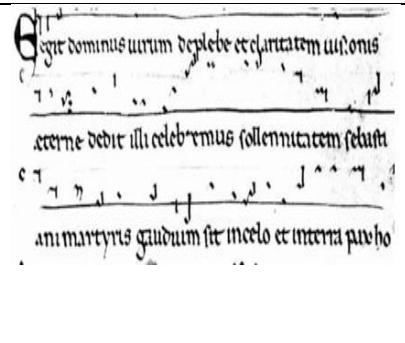 Egit dominus uirum deplebe et claritatem uisionis
æterne dedit illi celebremus sollennitatem sebasti
ani martyris gaudium sit incelo et interra pax ho